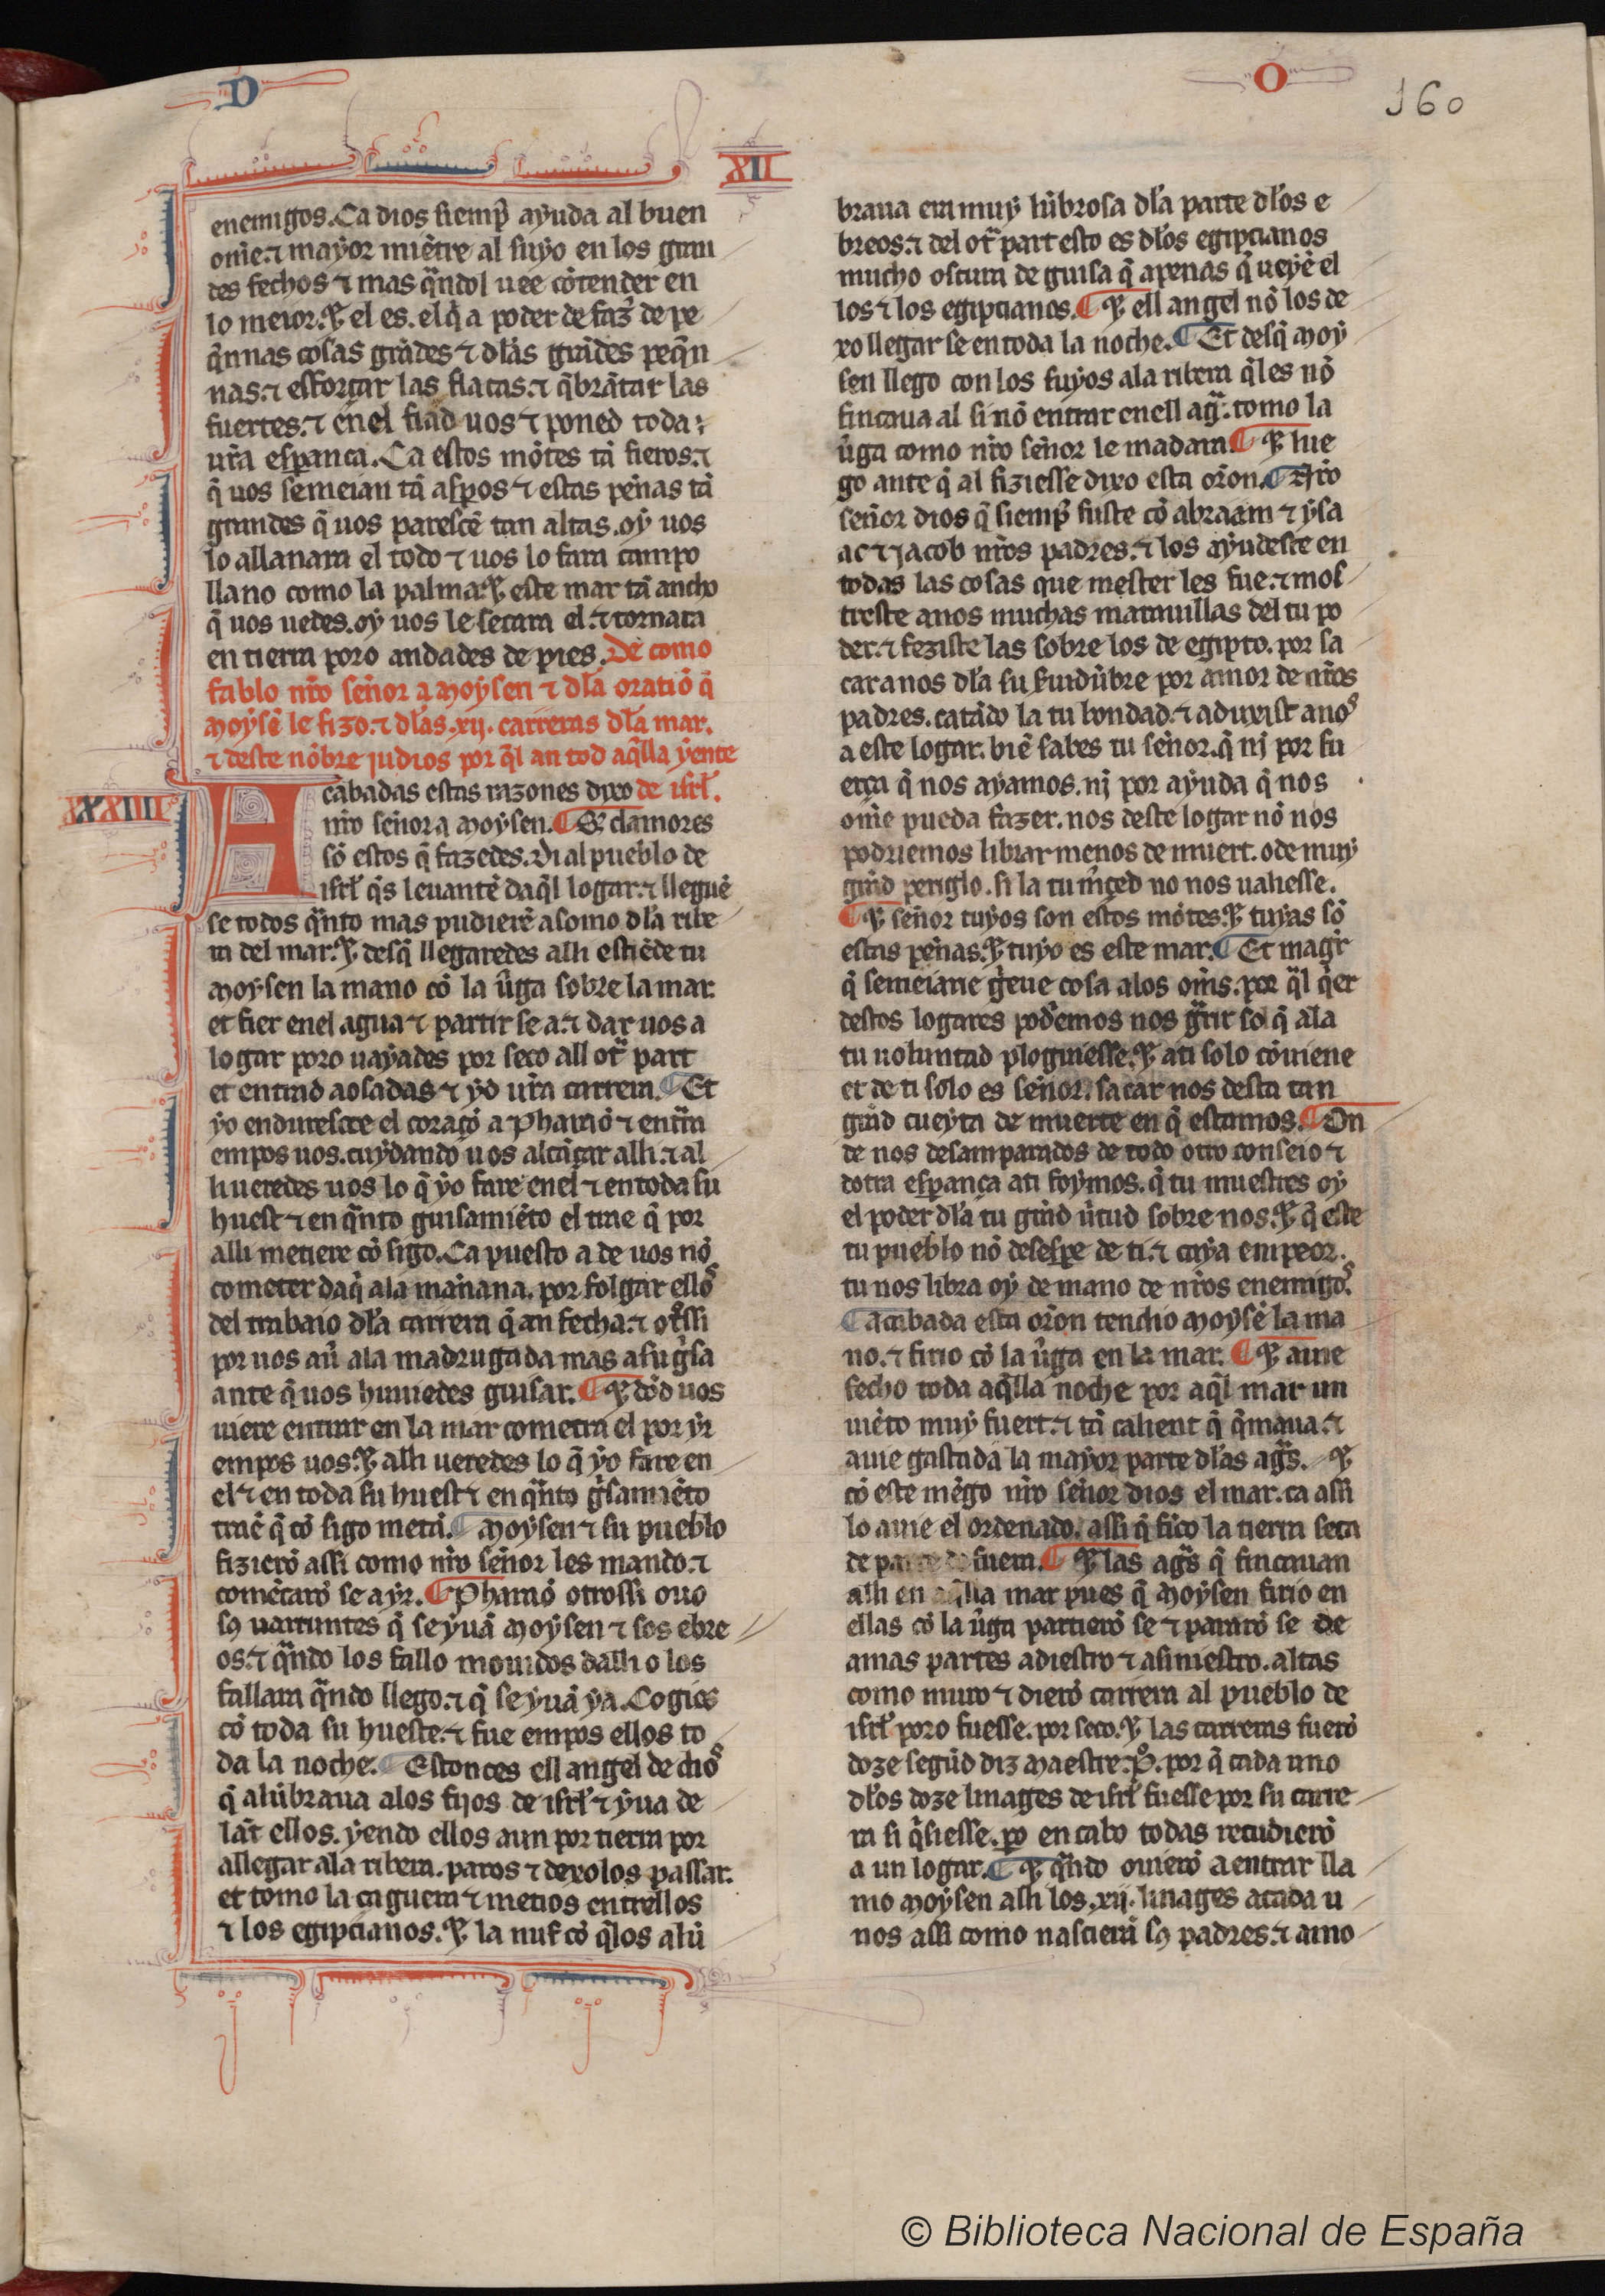 D
O
160
XII
enemigos. Ca dios siemp̃ ayuda al buen
om̃e. ⁊ mayor miẽtre al suyo en los gran
des fechos ⁊ mas q̃ndol uee cõtender en
lo meior. ⁊ el es. el q̃ a poder de faz̃ de pe
q̃nnas cosas grãdes ⁊ dl̃as grãdes peq̃n
nas. ⁊ esforçar las flacas. ⁊ q̃brãtar las
fuertes. ⁊ en el fiad uos ⁊ poned toda
ur̃a esperança. Ca estos mõtes tã fieros. ⁊
q̃ uos semeian tã asp̃os ⁊ estas pẽnas tã
grandes q̃ uos parescẽ tan altas. oy uos
lo allanara el todo ⁊ uos lo fara campo
llano como la palma. ⁊ este mar tã ancho
q̃ uos uedes. oy uos le secara el. ⁊ tornara
en tierra poro andades de pies. De como
fablo nr̃o señor a moysen ⁊ dl̃a oratiõ q̃
moysẽ le fizo. ⁊ dl̃as .xij. carreras dl̃a mar.
⁊ deste nõbre judios por q̃l an tod aq̃lla yente
XXXIIII
Acabadas estas razones dixo de isrl̃.
nr̃o señor a moysen. ¶ Q̃ clamores
sõ estos q̃ fazedes. Di al pueblo de
isrl̃ q̃s leuantẽ daq̃l logar. ⁊ lleguẽ
se todos q̃nto mas pudierẽ a somo dl̃a ribe
ra del mar. ⁊ desq̃ llegaredes alli estiẽde tu
moysen la mano cõ la ũga sobre la mar.
et fier enel agua ⁊ partir se a. ⁊ dar uos a
logar poro uayades por seco all otr̃ part
et entrad aosadas ⁊ yd ur̃a carrera. ¶ Et
yo endurescre el coraçõ a Pharaõ ⁊ entrãra
empos uos. cuydando uos alcãçar alli. ⁊ al
li ueredes uos lo q̃ yo fare enel ⁊ en toda su
huest ⁊ en q̃nto guisamiẽto el trae q̃ por
alli metiere cõ sigo. Ca puesto a de uos nõ
cometer daq̃ ala mañana. por folgar ellos
del trabaio dl̃a carrera q̃ an fecha. ⁊ otr̃ssi
por uos aũ ala madrugada mas a su g̃sa
ante q̃ uos huuiedes guisar. ¶ ⁊ dõd uos
uiere entrar en la mar cometra el por yr
empos uos. ⁊ alli ueredes lo q̃ yo fare en
el ⁊ en toda su huest ⁊ en q̃nto g̃samiẽto
traẽ q̃ cõ sigo metã. ¶ Moysen ⁊ su pueblo
fizierõ assi como nr̃o señor les mando. ⁊
comẽçarõ se a yr. ¶ Pharaõ otrossi ouo
sꝯ uarruntes q̃ se yuã moysen ⁊ sos ebre
os. ⁊ q̃ndo los fallo mouidos dalli o los
fallara q̃ndo llego. ⁊ q̃ se yuã ya. Cogios
cõ toda su hueste. ⁊ fue empos ellos to
da la noche. ¶ Estonces ell angel de dios
q̃ alũbraua alos fijos de isrl̃ ⁊ yua de
lãt ellos. yendo ellos aun por tierra por
allegar ala ribera. paros ⁊ dexolos passar.
et tomo la çaguera ⁊ metios entrellos
⁊ los egipcianos. ⁊ la nuf cõ q̃los alũ
braua era muy lũbrosa dl̃a parte dl̃os e
breos. ⁊ del otr̃ part esto es dl̃os egipcianos
mucho oscura de guisa q̃ apenas q̃ ueyẽ el
los ⁊ los egipcianos. ¶ ⁊ ell angel nõ los de
xo llegar se en toda la noche. ¶ Et desq̃ moy
sen llego con los suyos ala ribera q̃les nõ
fincaua al si nõ entrar en ell ag̃. tomo la
ũga como nr̃o señor le madara. ¶ ⁊ lue
go ante q̃ al fiziesse dixo esta or̃on. ¶ Nr̃o
señor dios q̃ siemp̃ fuste cõ abraam ⁊ ysa
ac ⁊ jacob nr̃os padres. ⁊ los ayudeste en
todas las cosas que mester les fue. ⁊ mos
treste anos muchas marauillas del tu po
der. ⁊ feziste las sobre los de egipto. por sa
car anos dl̃a su seruidũbre por amor de nr̃os
padres. catãdo la tu bondad. ⁊ aduxist anos
a este logar. biẽ sabes tu señor. q̃ nj por fu
erça q̃ nos ayamos. nj por ayuda q̃ nos
om̃e pueda fazer. nos deste logar nõ nos
podriemos librar menos de muert. o de muy
grãd periglo. si la tu m̃çed no nos ualiesse.
¶ ⁊ señor tuyos son estos mõtes. ⁊ tuyas sõ
estas peñas. ⁊ tuyo es este mar. ¶ Et mag̃r
q̃ semeiarie g̃eue cosa alos om̃s. por q̃l q̃er
destos logares podr̃emos nos g̃rir sol q̃ ala
tu uoluntad ploguiesse. ⁊ ati solo cõuiene
et de ti solo es señor. sacar nos desta tan
grãd cueyta de muerte en q̃ estamos. ¶ On
de nos desamparados de todo otro conseio ⁊
dotra esperança ati foymos. q̃ tu muestres oy
el poder dl̃a tu grãd ũtud sobre nos. ⁊ q̃ este
tu pueblo nõ desespe de ti. ⁊ caya em peor.
tu nos libra oy de mano de nr̃os enemigos.
¶ acabada esta or̃on tendio moysẽ la ma
no. ⁊ firio cõ la ũga en la mar. ¶ ⁊ auie
fecho toda aq̃lla noche por aq̃l mar un
uiẽto muy fuert. ⁊ tã calient q̃ q̃maua. ⁊
auie gastada la mayor parte dl̃as ag̃s. ⁊
cõ este mẽgo nr̃o señor dios el mar. ca assi
lo auie el ordenado. assi q̃ fico la tierra seca
de fuera. ¶ ⁊ las ag̃s q̃ fincauan
alli en aq̃lla mar pues q̃ moysen firio en
ellas cõ la ũga partierõ se ⁊ pararõ se de
amas partes adiestro ⁊ asiniestro. altas
como muro ⁊ dierõ carrera al pueblo de
isrl̃ poro fuesse. por seco. ⁊ las carreras fuerõ
doze segũd diz maestre .P̃. por q̃ cada uno
dl̃os doze linages de isrl̃ fuesse por su carre
ra si q̃siesse. p̃o en cabo todas recudierõ
a un logar. ¶ ⁊ q̃ndo ouierõ a entrar lla
mo moysen alli los .xij. linages acada u
nos assi como nascierã sꝯ padres. ⁊ amo
© Biblioteca Nacional de España